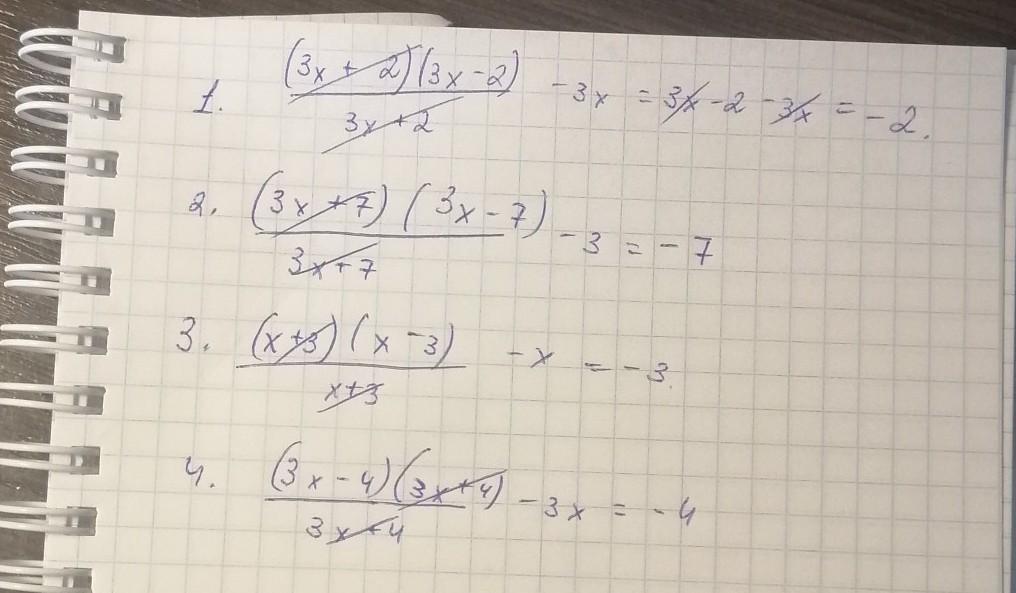 1. (3x + 2)(3x - 2) / 3x + 2 - 3x = 3x - 2 - 3x = - 2.
2. (3x + 7) (3x - 7) / 3x + 7 - 3 = - 7
3. (x + 3) (x - 3) / x + 3 - x = - 3.
4. (3x - 4)(3x + 4) / 3x + 4 - 3x = - 4